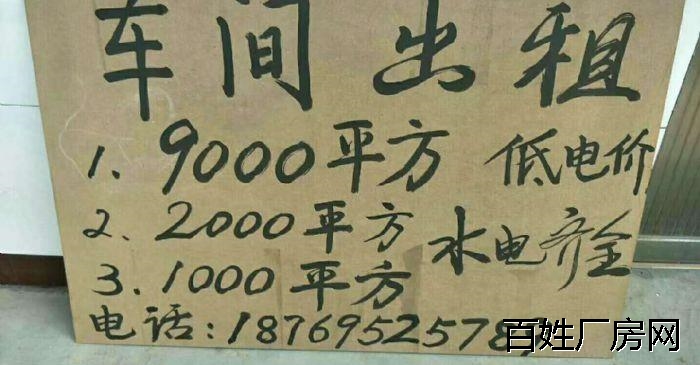 车间出租
1. 9000平方 低电价
2. 2000平方 水电齐全
3. 1000平方
电话: 1876952578
百姓厂房网